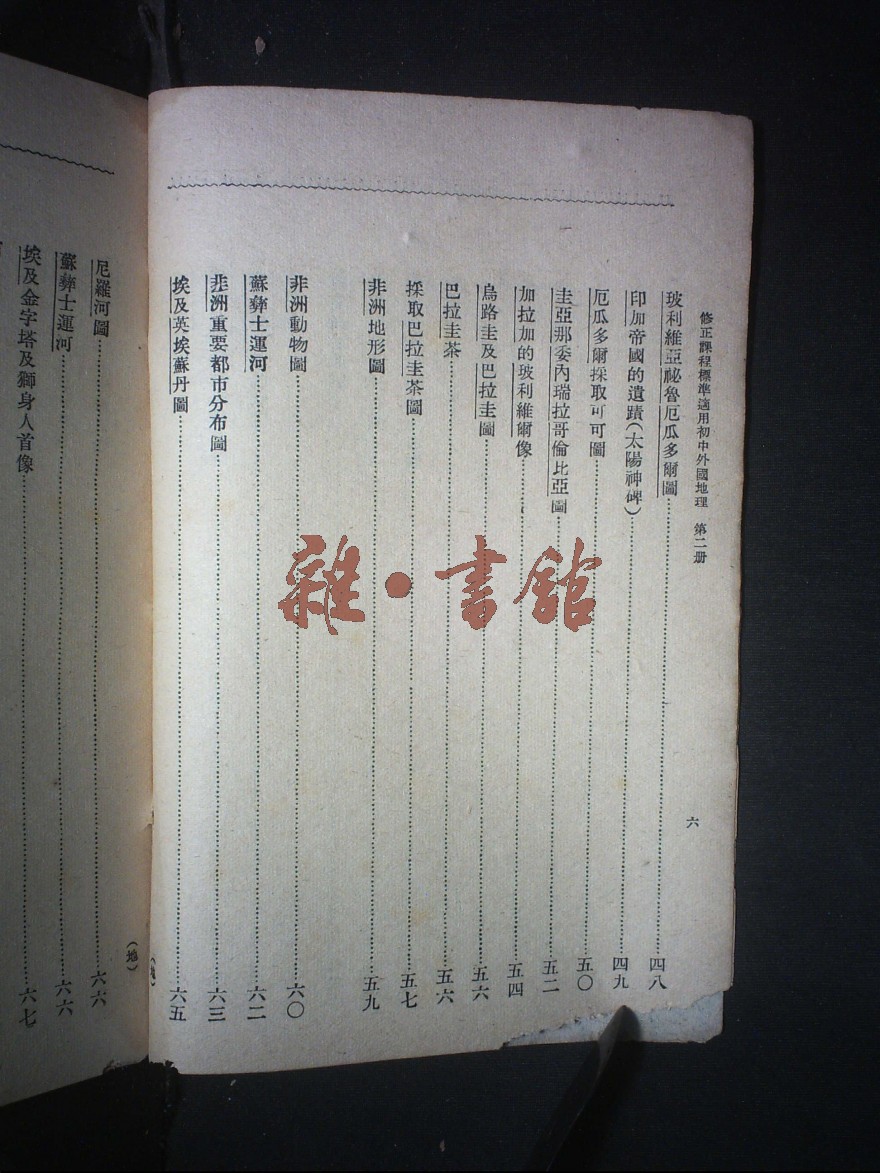 修正課程標準適用初中外國地理　第二册
六
玻利維亞祕魯厄瓜多爾圖……四八
印加帝國的遺蹟(太陽神碑)……四九
厄瓜多爾採取可可圖……五〇
圭亞那委內瑞拉哥倫比亞圖……五二
加拉加的玻利維爾像……五四
烏路圭及巴拉圭圖……五六
巴拉圭茶……五六
採取巴拉圭茶圖……五七
非洲地形圖……五九
非洲動物圖……六〇
蘇彝士運河……六二
非洲重要都市分布圖……六三
埃及英埃蘇丹圖……六五
(地)
尼羅河圖……六六
蘇彝士運河……六六
埃及金字塔及獅身人首像……六七
雜·書館